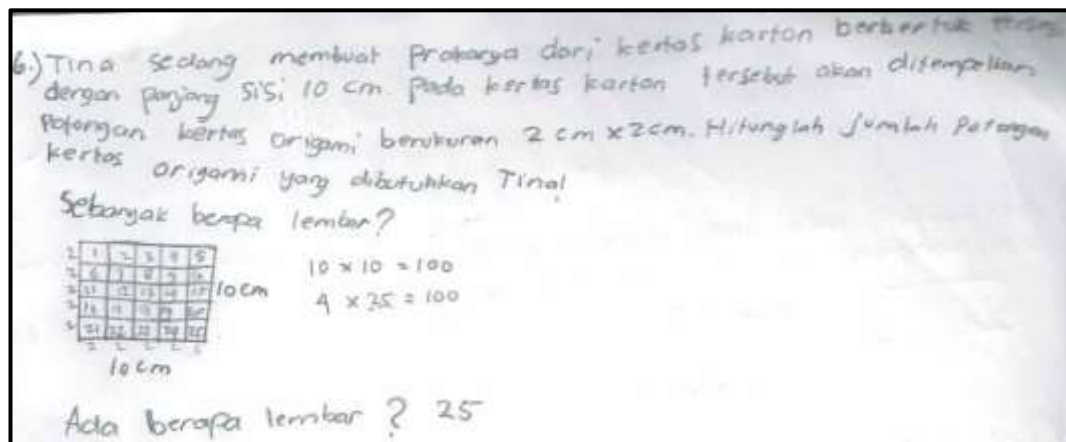 6.) Tina sedang membuat Prakarya dari kertas karton berbentuk
dengan panjang sisi 10 cm. Pada kertas karton tersebut akan ditempelkan
Potongan kertas origami berukuran 2 cm x 2cm. Hitunglah Jumlah Potongan
kertas origami yang dibutuhkan Tina!
Sebanyak berapa lembar?
2 1 2 3 4 5
2 6 7 8 9 10
2 11 12 13 14 15 10cm
2 16
2 21 22 23 24 25
10 cm
10 x 10 = 100
4 x 25 = 100
Ada berapa lembar ? 25